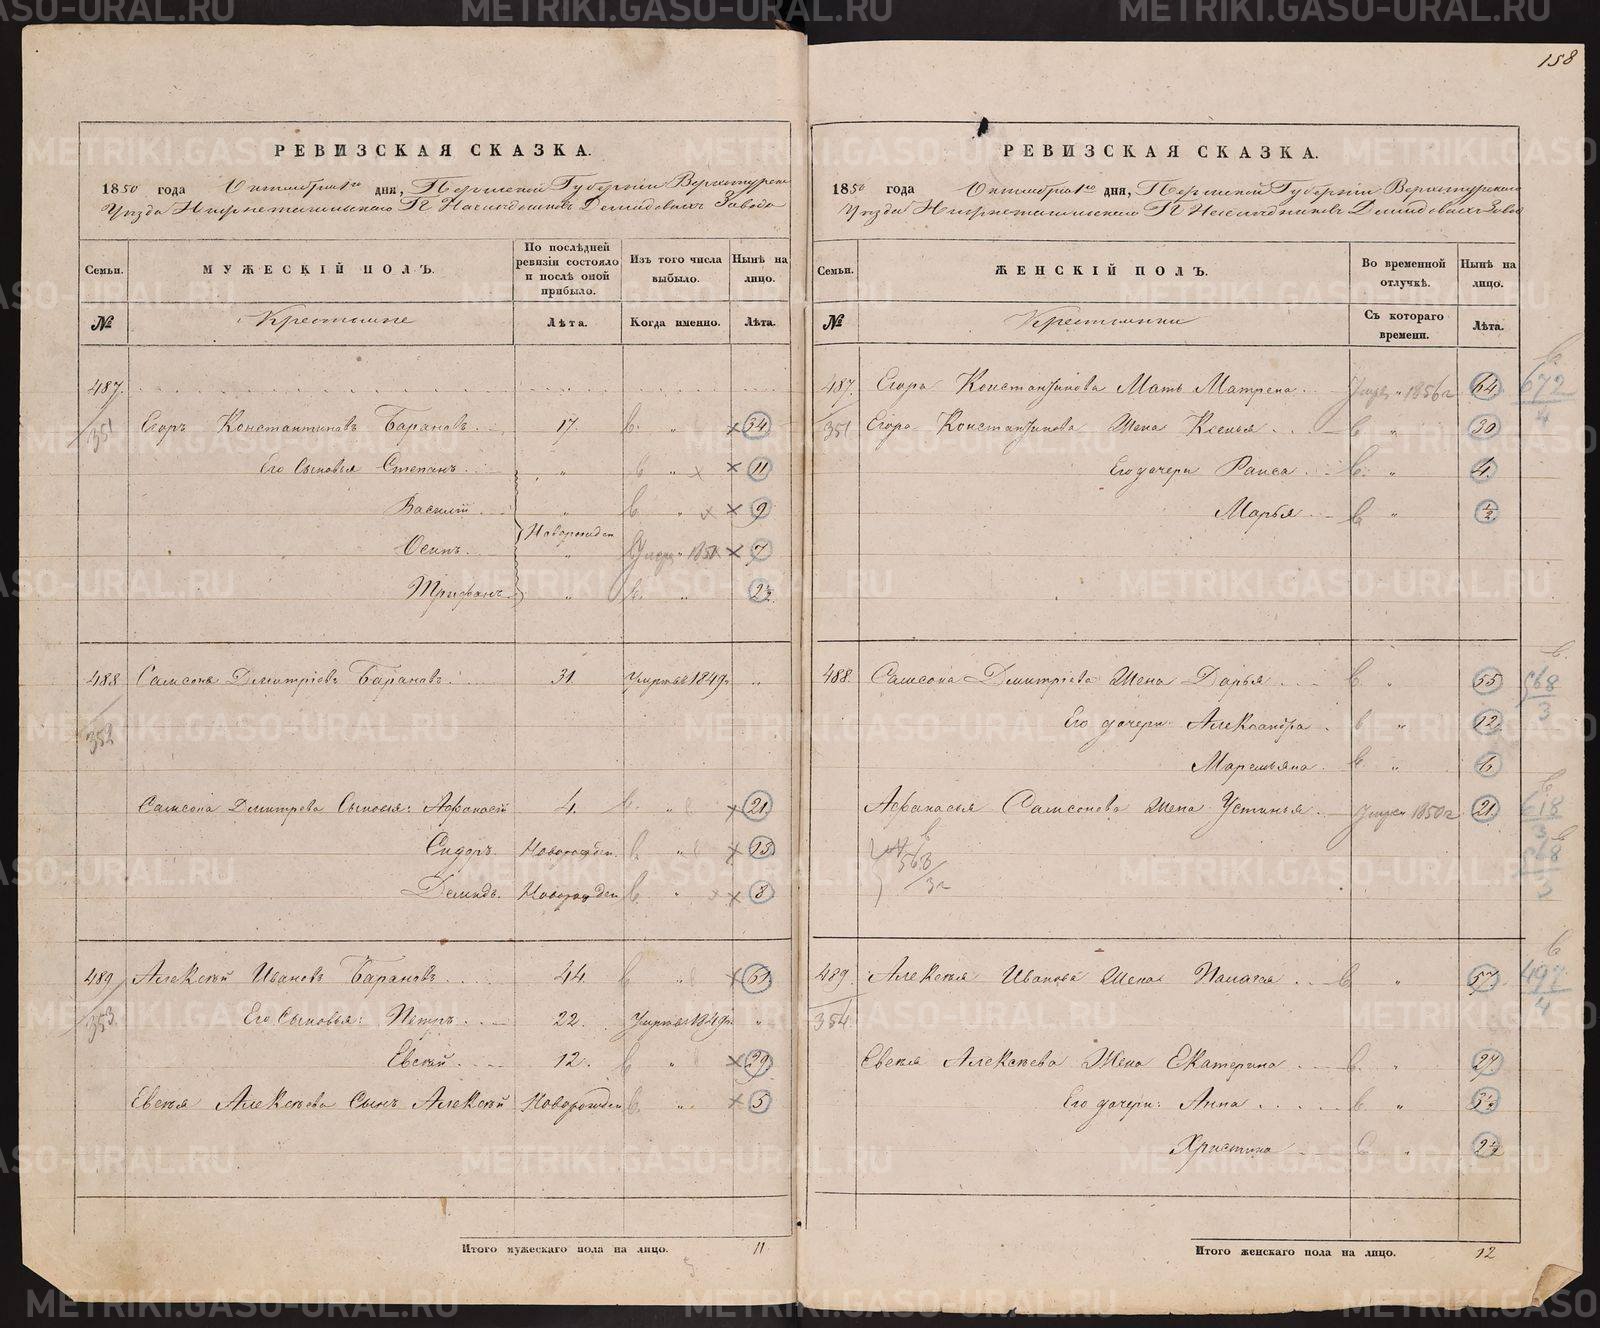 158
РЕВИЗСКАЯ СКАЗКА.
1850 года Октября 1го дня, Пермской Губернии Верхотурскаго
Уезда Нижнетагильскаго Г. Наследниковъ Демидовыхъ Завода
Семьи. МУЖЕСКІЙ ПОЛЪ. По послѣдней ревизіи состояло и послѣ оной прибыло. Изъ того числа выбыло. Нынѣ на лицо.
№ Крестьяне Лѣта. Когда именно. Лѣта.
487.
351 Егоръ Константиновъ Барановъ 17. 34
Его Сыновья Степанъ " 11
Василій " 9
Новорожден
Осипъ " 7
Трифонъ " 2½
488 Самсонъ Дмитріевъ Барановъ. 31. Умръ въ 1849 г. "
352
Самсона Дмитрева Сыновья: Афанасій 4. 21.
Сидоръ. Новорожден. 13
Демидъ. Новорожден 8
489 Алексѣй Ивановъ Барановъ 44. 61
353 Его Сыновья: Петръ 22. Умръ въ 1849 г. "
Евсѣй 12. 29
Евсѣя Алексѣева Сынъ Алексѣй Новорожден 5
Итого мужескаго пола на лицо. 11
РЕВИЗСКАЯ СКАЗКА.
1850 года Октября 1го дня, Пермской Губерніи Верхотурскаго
Уезда Нижнетагильскаго Г. Наследниковъ Демидовыхъ Завод
Семьи. ЖЕНСКІЙ ПОЛЪ. Во временной отлучкѣ. Нынѣ на лицо.
№ Крестьянки Съ котораго времени. Лѣта.
487. Егора Константинова Мать Матрена 1856 г 64
672/4
351 Егора Константинова Жена Ксенья 30
Его дочери Раиса 4.
Марья ½
488. Самсона Дмитріева Жена Дарья 55
568/3
Его дочери: Александра 12
Маремьяна 6
Афанасья Самсонова Жена Устинья 1850 г 21.
618/3
568/3
489. Алексѣя Иванова Жена Палагея 57.
497/4
354
Евсѣя Алексѣева Жена Екатерина 27
Его дочери: Анна 3½
Христина 2½
Итого женскаго пола на лицо. 12
METRIKI.GASO-URAL.RU